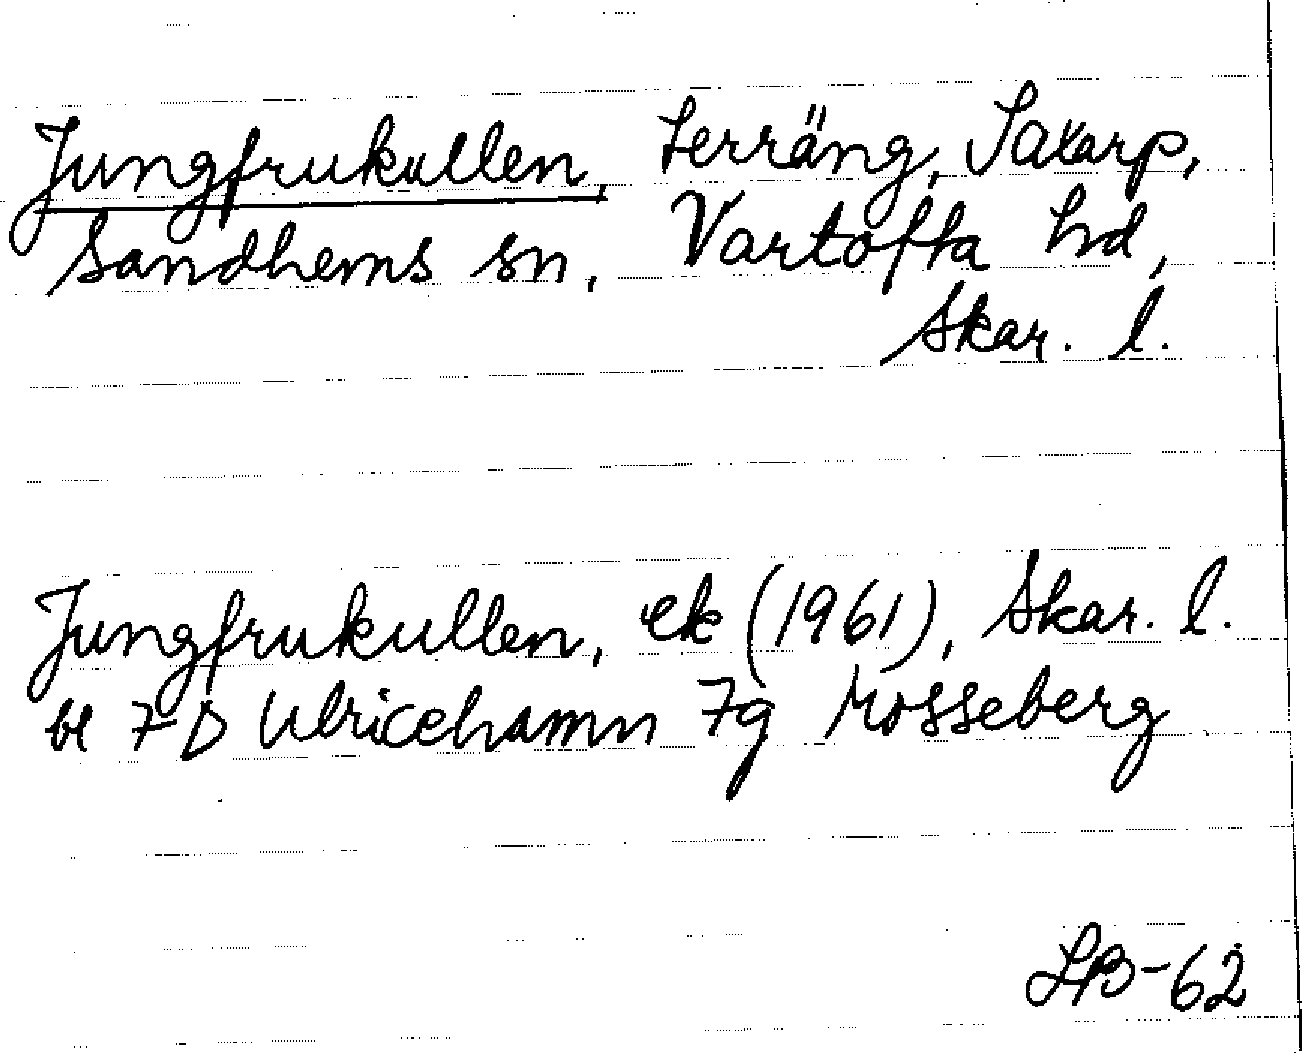 Jungfrukullen, terräng, Sakarp,
Sandhems sn, Vartofta hd,
Skar. l.
Jungfrukullen, ek (1961), Skar. l.
bl 7D Ulricehamn 7g Mosseberg
LB-62